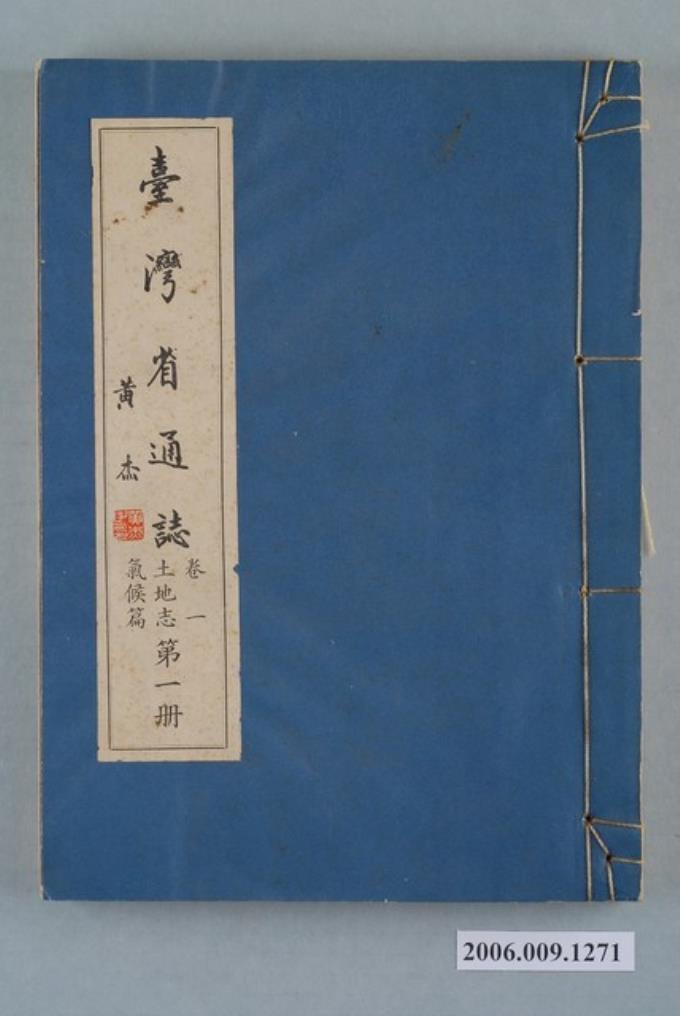 臺灣省通誌
卷一
土地志
氣候篇
第一册
黃杰
2006.009.1271